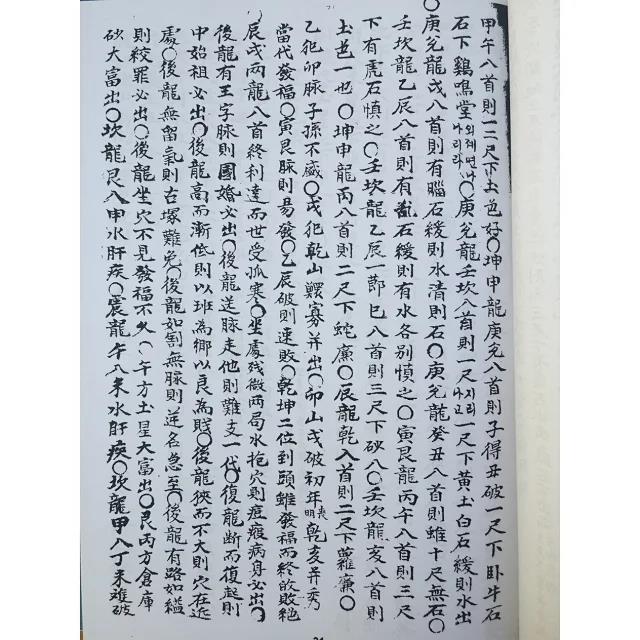 甲午八首則一二尺下土色好〇坤申龍庚兌八首則子得丑破一尺下卧牛石
石下鷄鳴堂〇庚兌龍壬坎八首則一尺一尺下黃土白石緩則水出
〇庚兌龍戌八首則有腦石緩則水清則石〇庚兌龍癸丑八首則雖十尺無石〇
壬坎龍乙辰八首則有石緩則有水各別慎之〇寅艮龍丙午八首則三尺
下有虎石慎之〇壬坎龍乙辰一節巳八首則三尺下砂八〇壬坎龍亥八首則
土色一也〇坤申龍丙八首則二尺下蛇廉〇辰龍乾入首則二尺下蘿廉〇
乙犯卯脉子孫不盛〇戌犯乾山鰥寡并出〇卯山戌破初年乾亥并秀
當代發福〇寅艮脉則易發〇乙辰破則速敗〇乾坤二位到頭雖發福而終敗絕
辰戌兩龍八首終利達而世受孤寒〇坐處殘微兩局水抱穴則病身必出〇
後龍有王字脉則國婚必出〇後龍送脉走他則難支一代〇復龍斷而復起則
中始祖必出〇後龍高而漸低則以班為鄉以良為賤〇後龍狹而不大則穴在近
處〇後龍無留氣則古塚難免〇後龍如割無脉則逆名急至〇後龍有路如縊
則絞罪必出〇後龍坐穴不見發福不久〇午方土星大富出〇艮丙方倉庫
砂大富出〇坎龍艮八申水肝疾〇震龍午八未水肝疾〇坎龍甲八丁未難破